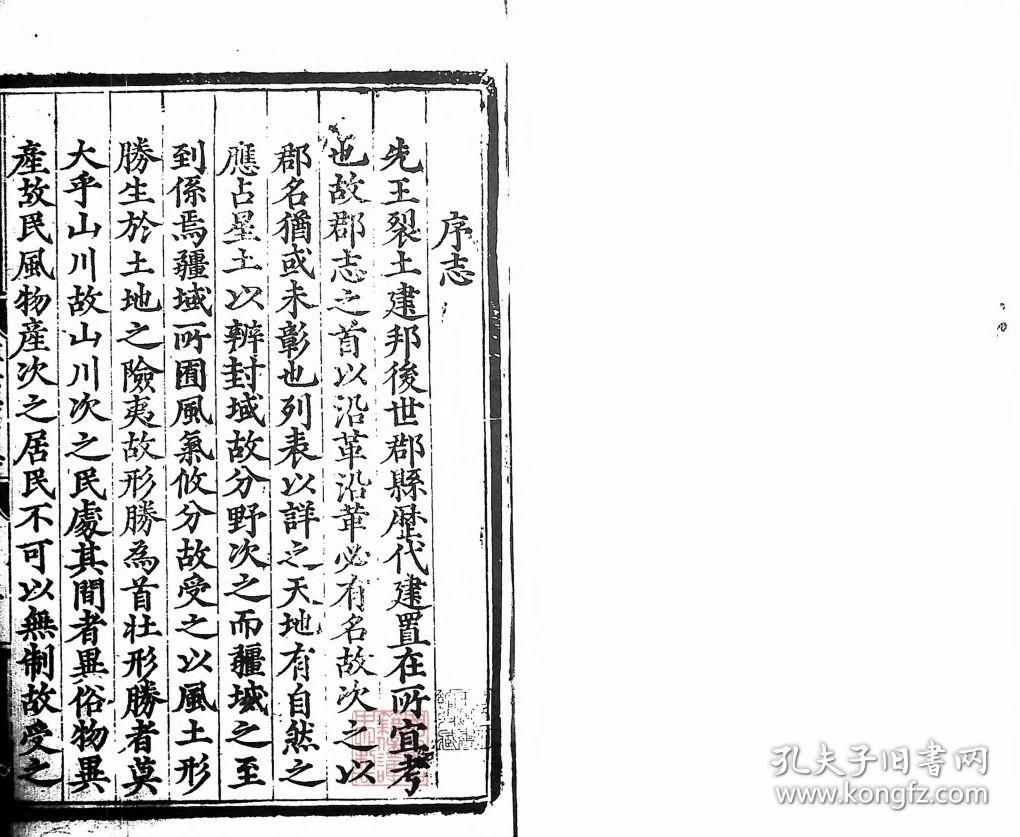 序志
先王裂土建邦後世郡縣歴代建置在所宜考
也故郡志之首以沿革沿革必有名故次之以
郡名猶或未彰也列表以詳之天地有自然之
應占星土以辨封域故分野次之而疆域之至
到係焉疆域所囿風氣攸分故受之以風土形
勝生於土地之險夷故形勝為首壯形勝者莫
大乎山川故山川次之民處其間者異俗物異
產故民風物產次之居民不可以無制故受之
孔夫子旧书网
www.kongfz.com